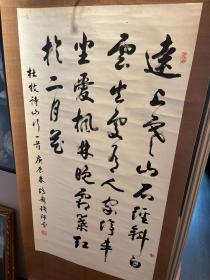 遠上寒山石徑斜白
雲生處有人家停車
坐愛楓林晚霜葉紅
於二月花
杜牧詩山行一首庚